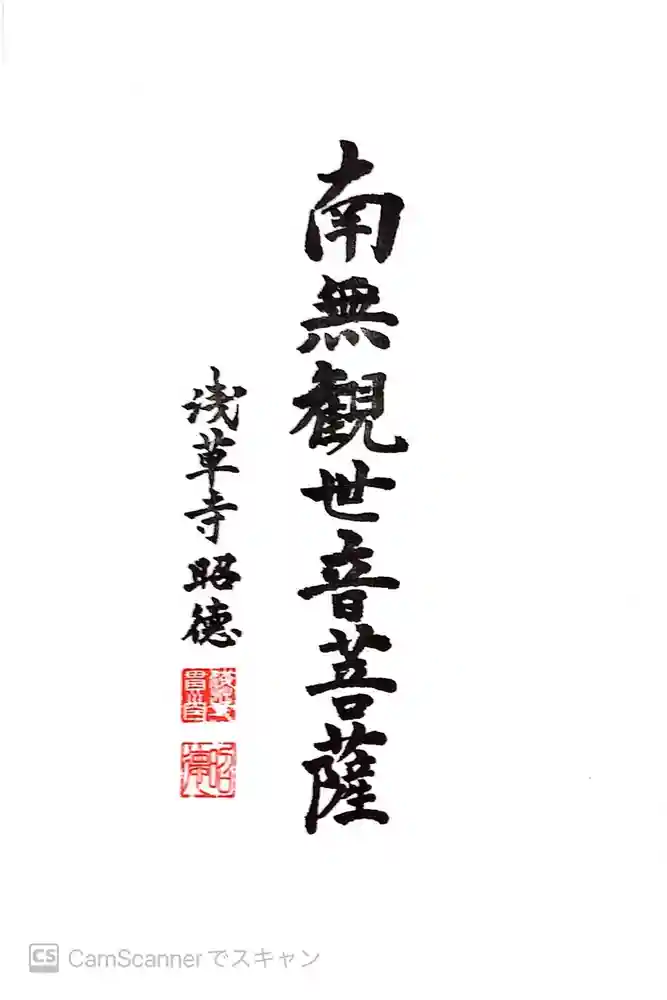 南無観世音菩薩
浅草寺昭徳
CS CamScannerでスキャン